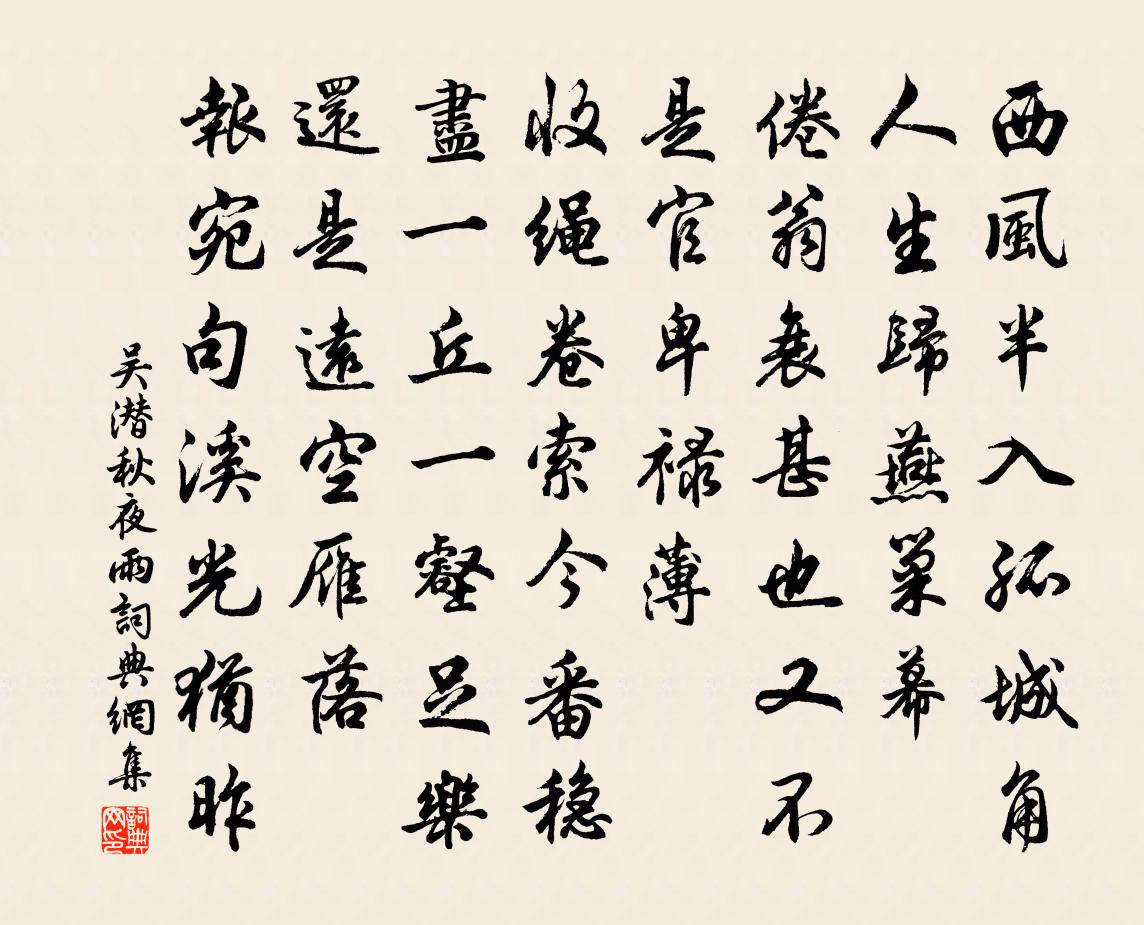 西風半入孤城角
人生歸燕巢幕
倦翁衰甚也又不
是官卑禄薄
收绳卷索今番稳
盡一丘一壑足樂
還是遠空雁落
報宛句溪光猶昨
吴潜秋夜雨詞典網集
詞典网印